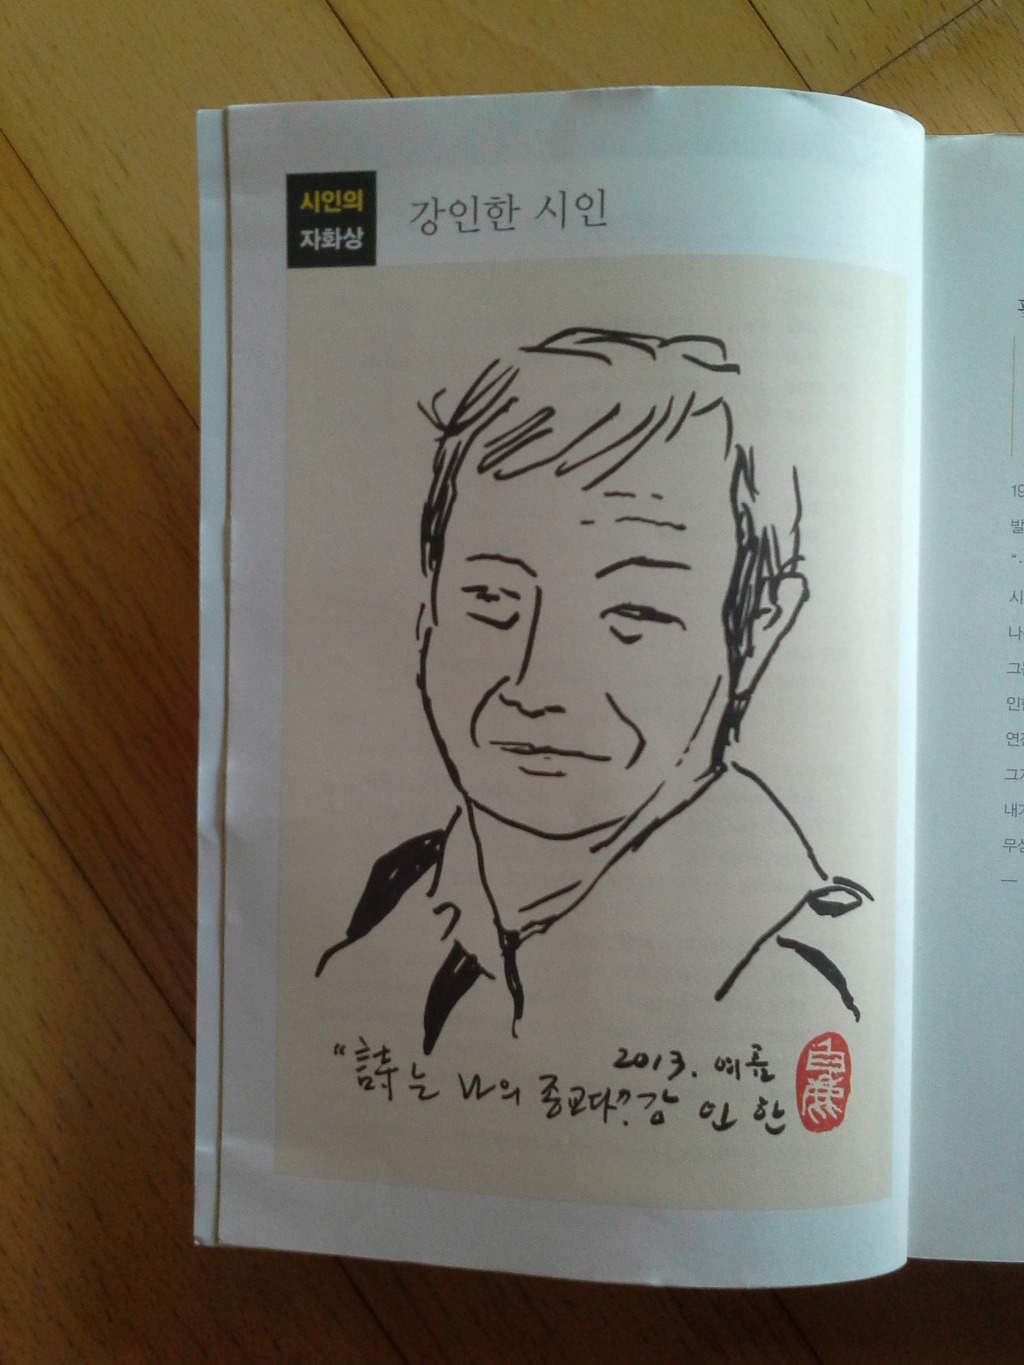 시인의
자화상
강인한 시인
“詩는 나의 종교다”
2013. 여름
강 인 한
19
발
시
나
인
내
무